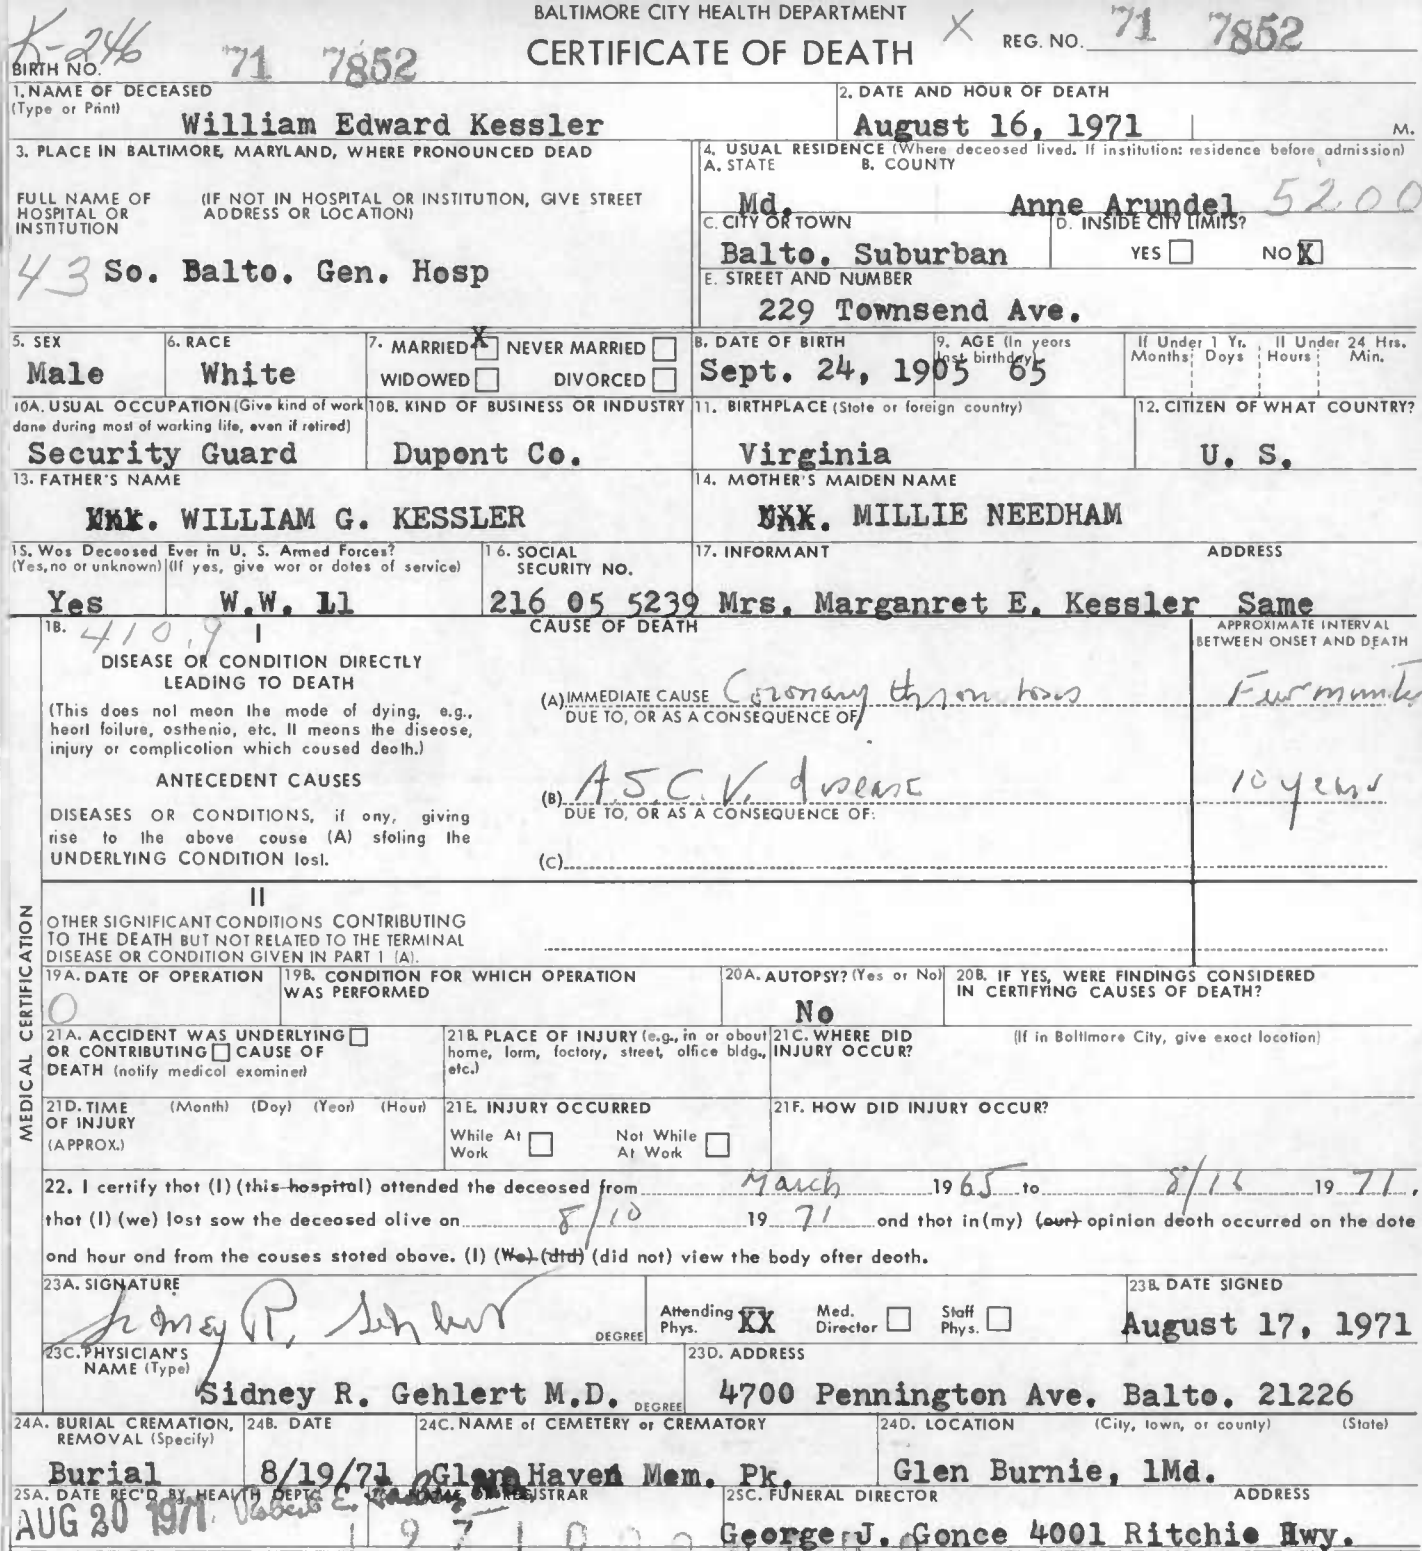 BALTIMORE CITY HEALTH DEPARTMENT
K-246 71 7852 CERTIFICATE OF DEATH X REG. NO. 71 7852
BIRTH NO.
1. NAME OF DECEASED (Type or Print) William Edward Kessler
2. DATE AND HOUR OF DEATH August 16, 1971 M.
3. PLACE IN BALTIMORE, MARYLAND, WHERE PRONOUNCED DEAD
FULL NAME OF HOSPITAL OR INSTITUTION (IF NOT IN HOSPITAL OR INSTITUTION, GIVE STREET ADDRESS OR LOCATION)
43 So. Balto. Gen. Hosp
4. USUAL RESIDENCE (Where deceosed lived. If institution: residence before admission)
A. STATE B. COUNTY
Md. Anne Arundel 5200
C. CITY OR TOWN D. INSIDE CITY LIMITS?
Balto. Suburban YES NO X
E. STREET AND NUMBER
229 Townsend Ave.
5. SEX Male
6. RACE White
7. MARRIED X NEVER MARRIED
WIDOWED DIVORCED
8. DATE OF BIRTH Sept. 24, 1905
9. AGE (In years last birthday) 65
If Under 1 Yr. Months Doys
If Under 24 Hrs. Hours Min.
10A. USUAL OCCUPATION (Give kind of work done during most of working life, even if retired)
Security Guard
10B. KIND OF BUSINESS OR INDUSTRY
Dupont Co.
11. BIRTHPLACE (State or foreign country)
Virginia
12. CITIZEN OF WHAT COUNTRY?
U. S.
13. FATHER'S NAME
WILLIAM G. KESSLER
14. MOTHER'S MAIDEN NAME
MILLIE NEEDHAM
15. Wos Deceosed Ever in U. S. Armed Forces?
(Yes, no or unknown) (If yes, give wor or dotes of service)
Yes W.W. 11
16. SOCIAL SECURITY NO.
216 05 5239
17. INFORMANT ADDRESS
Mrs. Marganret E. Kessler Same
18. 410.9 I CAUSE OF DEATH
APPROXIMATE INTERVAL BETWEEN ONSET AND DEATH
DISEASE OR CONDITION DIRECTLY
LEADING TO DEATH
(This does nol meon lhe mode of dying, e.g.,
heorl foilure, osthenio, etc. Il meons the diseose,
injury or complicolion which coused deolh.)
(A) IMMEDIATE CAUSE Coronary thrombosis
DUE TO, OR AS A CONSEQUENCE OF
ANTECEDENT CAUSES
DISEASES OR CONDITIONS, if ony, giving
rise to lhe obove couse (A) sfoling lhe
UNDERLYING CONDITION losl.
(B) A.S.C.V. disease 10 years
DUE TO, OR AS A CONSEQUENCE OF:
(C)
II
OTHER SIGNIFICANT CONDITIONS CONTRIBUTING
TO THE DEATH BUT NOT RELATED TO THE TERMINAL
DISEASE OR CONDITION GIVEN IN PART 1 (A).
MEDICAL CERTIFICATION
19A. DATE OF OPERATION 0
19B. CONDITION FOR WHICH OPERATION WAS PERFORMED
20A. AUTOPSY? (Yes or No) No
20B. IF YES, WERE FINDINGS CONSIDERED IN CERTIFYING CAUSES OF DEATH?
21A. ACCIDENT WAS UNDERLYING
OR CONTRIBUTING CAUSE OF
DEATH (notify medicol exominer)
21B. PLACE OF INJURY (e.g., in or obout
home, lorm, foctory, street, olfice bldg.,
etc.)
21C. WHERE DID INJURY OCCUR? (If in Boltimore City, give exoct locotion)
21D. TIME (Month) (Doy) (Yeor) (Hour)
OF INJURY
(APPROX.)
21E. INJURY OCCURRED
While At Work Not While At Work
21F. HOW DID INJURY OCCUR?
22. I certify that (I) (this hospital) ottended the deceosed from March 1965 to 8/16 1971,
thot (I) (we) lost sow the deceosed olive on 8/10 1971 ond thot in (my) (our) opinion deoth occurred on the dote
ond hour ond from the couses stoted obove. (I) (We) (did) (did not) view the body ofter deoth.
23A. SIGNATURE Sidney R. Gehlert DEGREE
Attending Phys. XX Med. Director Stoff Phys.
23B. DATE SIGNED
August 17, 1971
23C. PHYSICIAN'S NAME (Type)
Sidney R. Gehlert M.D. DEGREE
23D. ADDRESS
4700 Pennington Ave. Balto. 21226
24A. BURIAL CREMATION, REMOVAL (Specify)
Burial
24B. DATE
8/19/71
24C. NAME of CEMETERY or CREMATORY
Glen Haven Mem. Pk.
24D. LOCATION (City, town, or county) (State)
Glen Burnie, 1Md.
25A. DATE REC'D BY HEALTH DEPT.
AUG 20 1971 Robert E.
REGISTRAR
1 9 7 1 0
25C. FUNERAL DIRECTOR ADDRESS
George J. Gonce 4001 Ritchie Hwy.